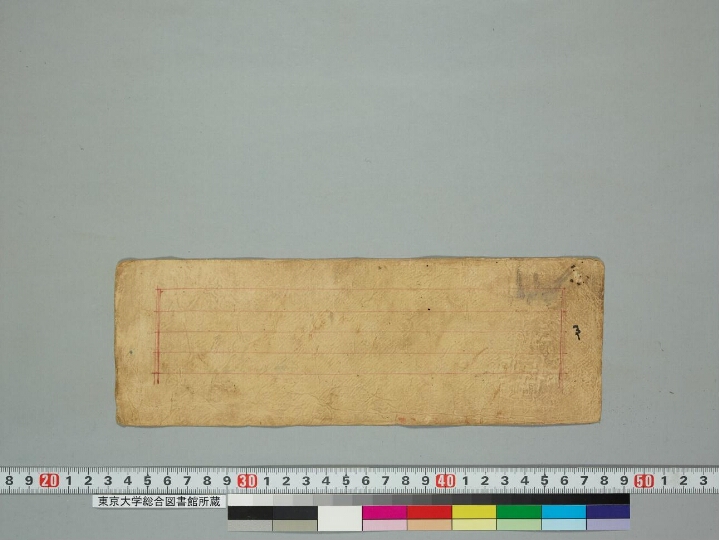 8 9 20 1 2 3 4 5 6 7 8 9 30 1 2 3 4 5 6 7 8 9 40 1 2 3 4 5 6 7 8 9 50 1 2 3
東京大学総合図書館所蔵